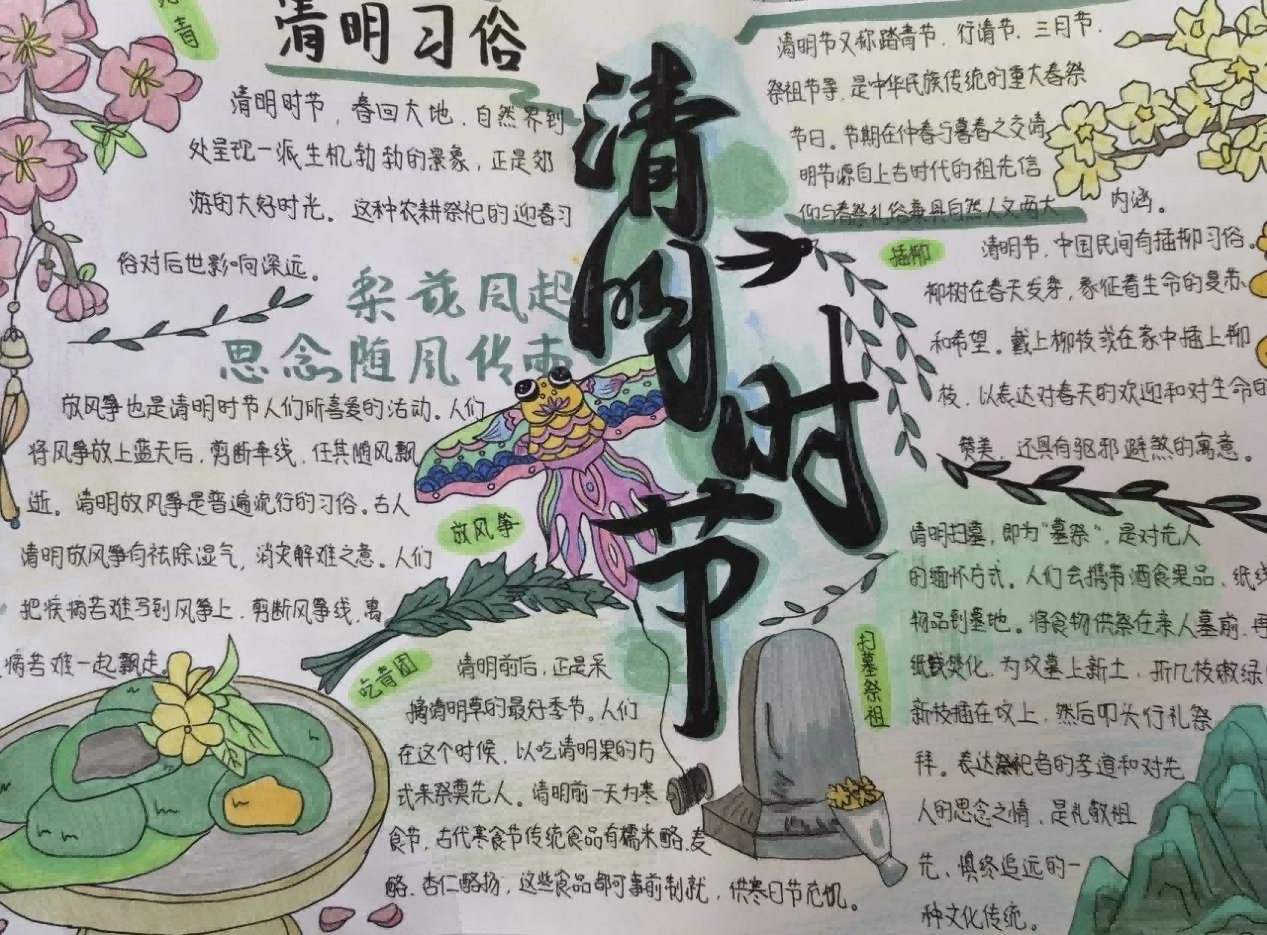 青
清明习俗
清明时节，春回大地，自然界到
处呈现一派生机勃勃的景象，正是郊
游的大好时光。这种农耕祭祀的迎春习
俗对后世影响深远。
梨花风起
思念随风传南
放风筝也是清明时节人们所喜爱的活动。人们
将风筝放上蓝天后，剪断牵线，任其随风飘
逝。清明放风筝是普遍流行的习俗。古人
清明放风筝有祛除湿气，消灾解难之意。人们
把疾病苦难写到风筝上，剪断风筝线，寓
病苦难一起飘走
放风筝
吃青团
清明前后，正是采
摘清明草的最好季节。人们
在这个时候，以吃清明果的方
式来祭奠先人。清明前一天为寒
食节，古代寒食节传统食品有糯米酪、麦
酪、杏仁酪扬，这些食品都可事前制就，供寒日节充饥。
清明时节
清明节又称踏青节、行清节、三月节、
祭祖节等，是中华民族传统的重大春祭
节日。节期在仲春与暮春之交清
明节源自上古时代的祖先信
仰与春祭礼俗兼具自然人文两大
内涵。
插柳
清明节，中国民间有插柳习俗、
柳树在春天发芽，象征着生命的复苏
和希望。戴上柳枝或在家中插上柳
枝，以表达对春天的欢迎和对生命的
赞美，还具有驱邪避煞的寓意。
扫墓祭祖
清明扫墓，即为“墓祭”，是对先人
的缅怀方式。人们会携带酒食果品、纸钱
物品到墓地。将食物供祭在亲人墓前，再
纸钱焚化，为坟墓上新土，折几枝嫩绿
新枝插在坟上，然后叩头行礼祭
拜。表达祭祀者的孝道和对先
人的思念之情，是礼敬祖
先、慎终追远的一
种文化传统。